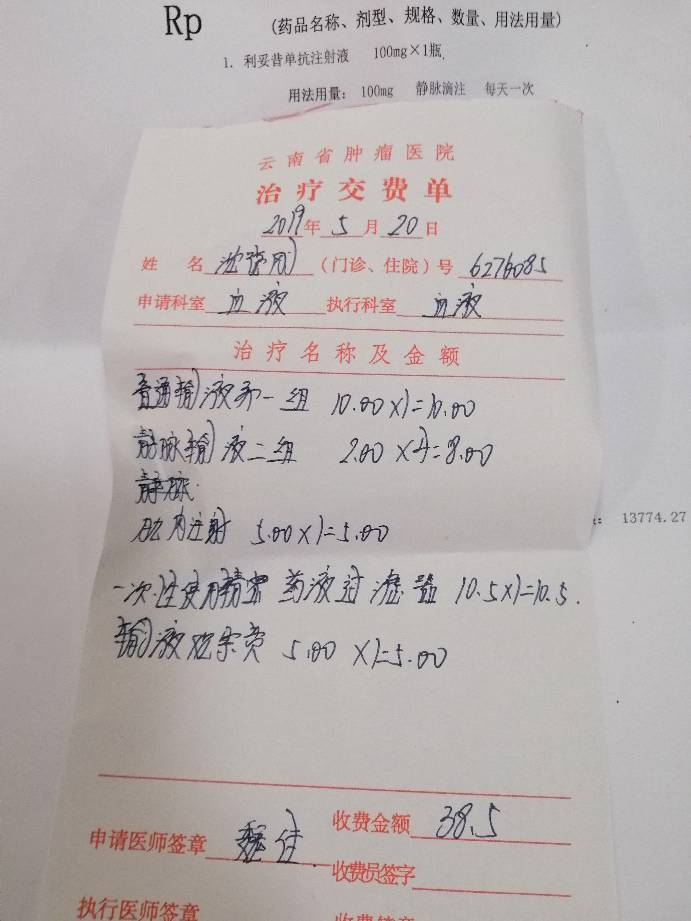 Rp (药品名称、剂型、规格、数量、用法用量)
1. 利妥昔单抗注射液 100mg×1瓶
用法用量: 100mg 静脉滴注 每天一次
云南省肿瘤医院
治疗交费单
2019年5月20日
姓 名 (门诊、住院)号 6276085
申请科室 血液 执行科室 血液
治疗名称及金额
普通输液第一组 10.00×1=10.00
静脉输液二组 2.00×4=8.00
静脉
肌肉注射 5.00×1=5.00
13774.27
一次性使用精密药液过滤器 10.5×1=10.5.
输液观察费 5.00×1=5.00
申请医师签章 收费金额 38.5
收费员签字
执行医师签章